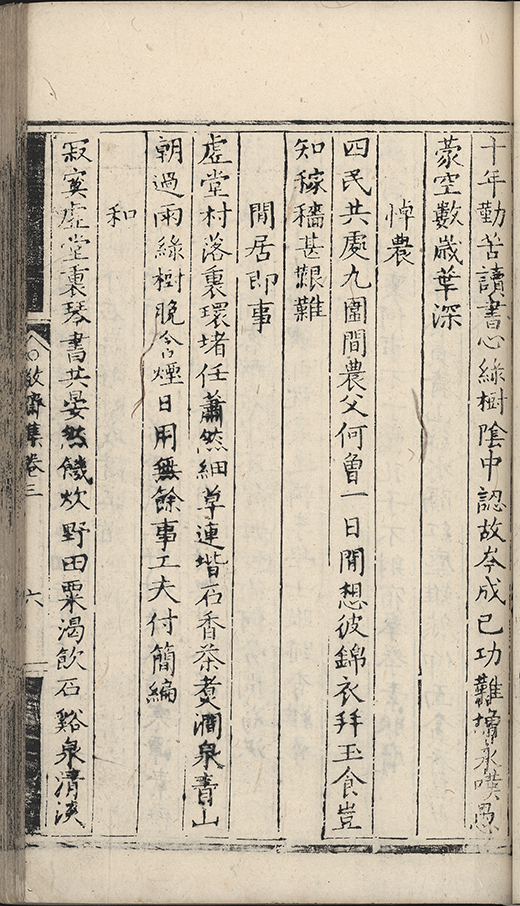 十年勤苦讀書心綠樹陰中認故岑成已功難續永嘆愚
蒙空數歲華深
悼農
四民共處九圍間農父何曾一日閒想彼錦衣拜玉食豈
知稼穡甚艱難
閒居即事
虛堂村落裏環堵任蕭然細草連堦石香茶煮澗泉青山
朝過雨綠樹晚含煙日用無餘事工夫付簡編
和
寂寞虛堂裏琴書共晏然饑炊野田粟渴飲石谿泉清淡
敬齋集卷三
六